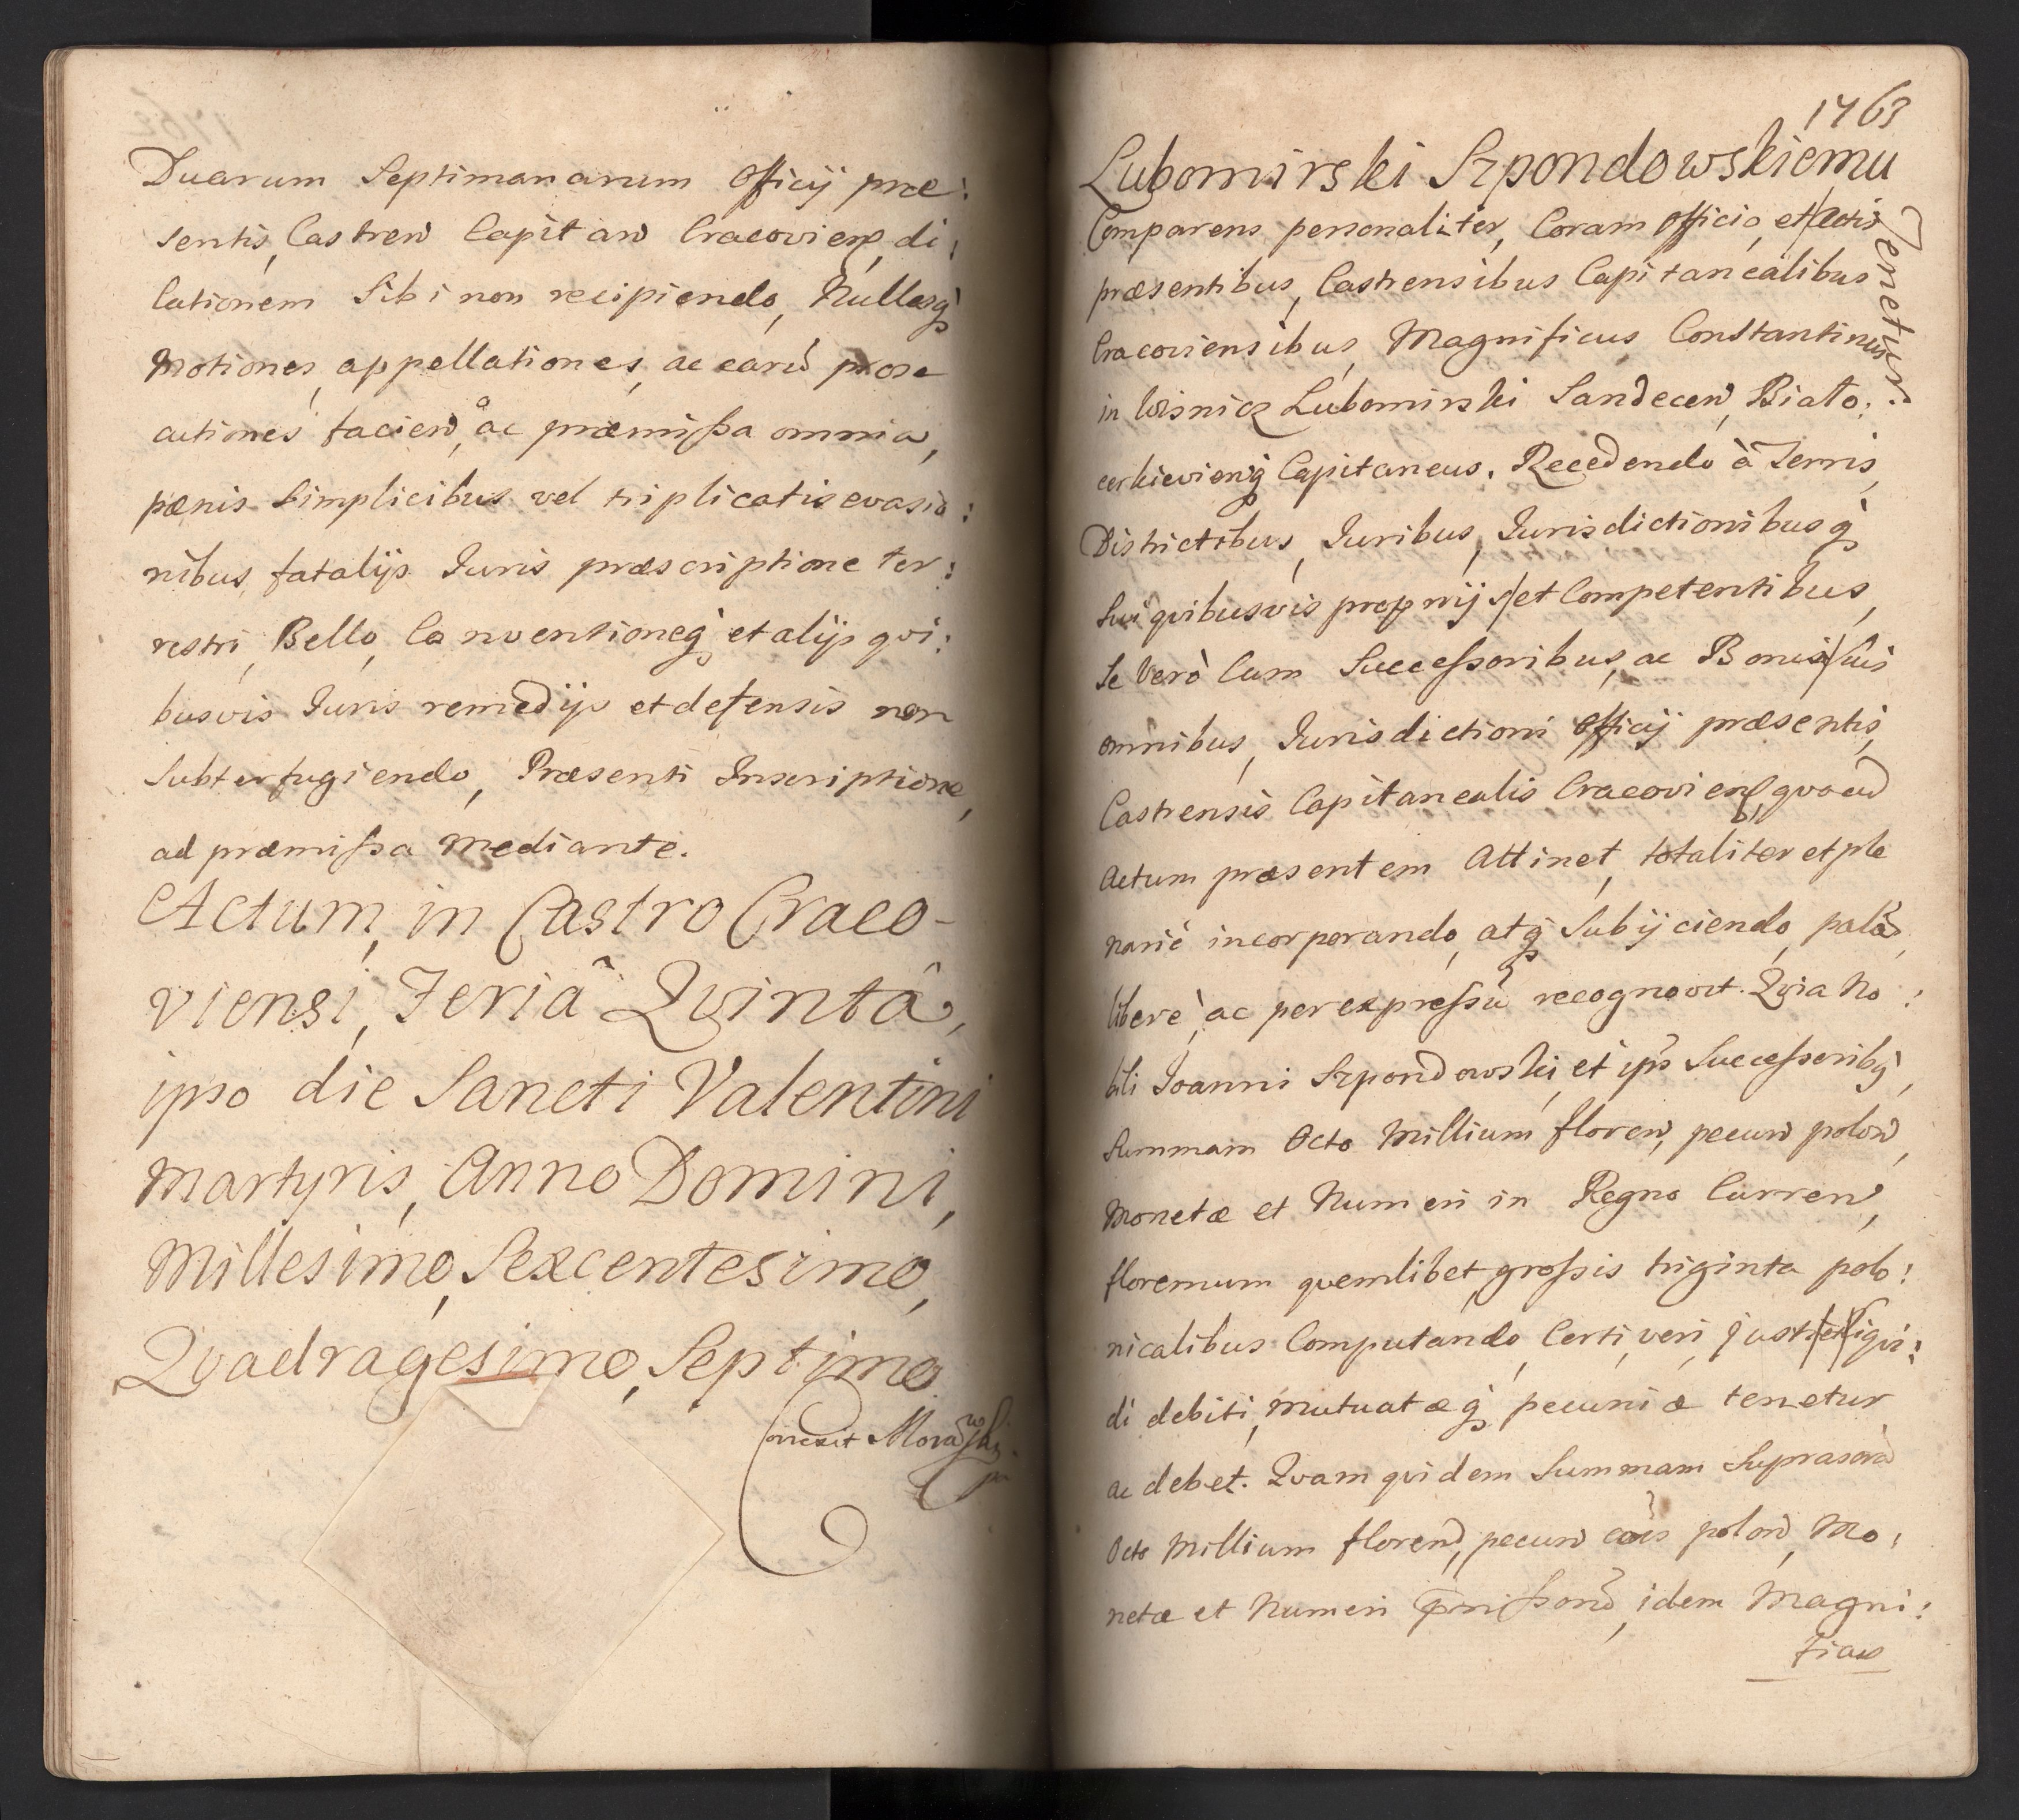 Duarum Septimanarum Officij præ:
sentis, Castren Capitan Cracovien, di:
lationem Sibi non recipiendo, Nullasq́
Motiones, appellationes, ac earũ prose
cutiones facien, ac præmissa omnia,
pænis simplicibus vel triplicatis evasio:
nibus, fatalijs Juris præscriptione ter:
restri, Bello, Conventioneq́ et alijs qvi:
busvis Juris remedijs et defensis non
Subterfugiendo, Præsenti Inscriptione,
ad præmissa mediante.
Actum, in Castro Craco-
viensi, Feriâ Qvintâ,
ipso die Sancti Valentini
Martyris, Anno Domini,
Millesimo, Sexcentesimo,
Qvadragesimo, Septimo
Correxit
1763
Lubomirski Szpondowskiemu
Tenetur.
Comparens personaliter, Coram Officio, et Actis
præsentibus, Castrensibus Capitanealibus
Cracoviensibus, Magnificus Constantinus
in Wisnicz Lubomirski Sandecen, Biało:
cerkievienq́ Capitaneus. Recedendo à Terris,
Districtibus, Juribus, Jurisdictionibusq́
Sui qvibusvis proprijs, et Competentibus,
Se Verò Cum Successoribus, ac Bonis Suis
omnibus, Jurisdictioni Officij præsentis,
Castrensis Capitanealis Cracovien, qvoad
Actum præsentem Attinet, totaliter et ple
nariè incorporando, atq́ Subijciendo, palã,
liberè, ac per expressũ recognovit. Qvia No:
bili Joanni Szpondowski, et ips Successoribq́,
Summam Octo Millium floren, pecun polon,
Monetæ et Numeri in Regno Curren,
florenum qvemlibet, grossis triginta polo:
nicalibus Computando, Certi, veri, justi et liqvi:
di debiti, mutuatæq́ pecuniæ tenetur
ac debet. Qvam qvidem Summam Suprascrã
Octo Millium floren, pecun cois polon, Mo:
netæ et Numeri idem Magni:
ficus